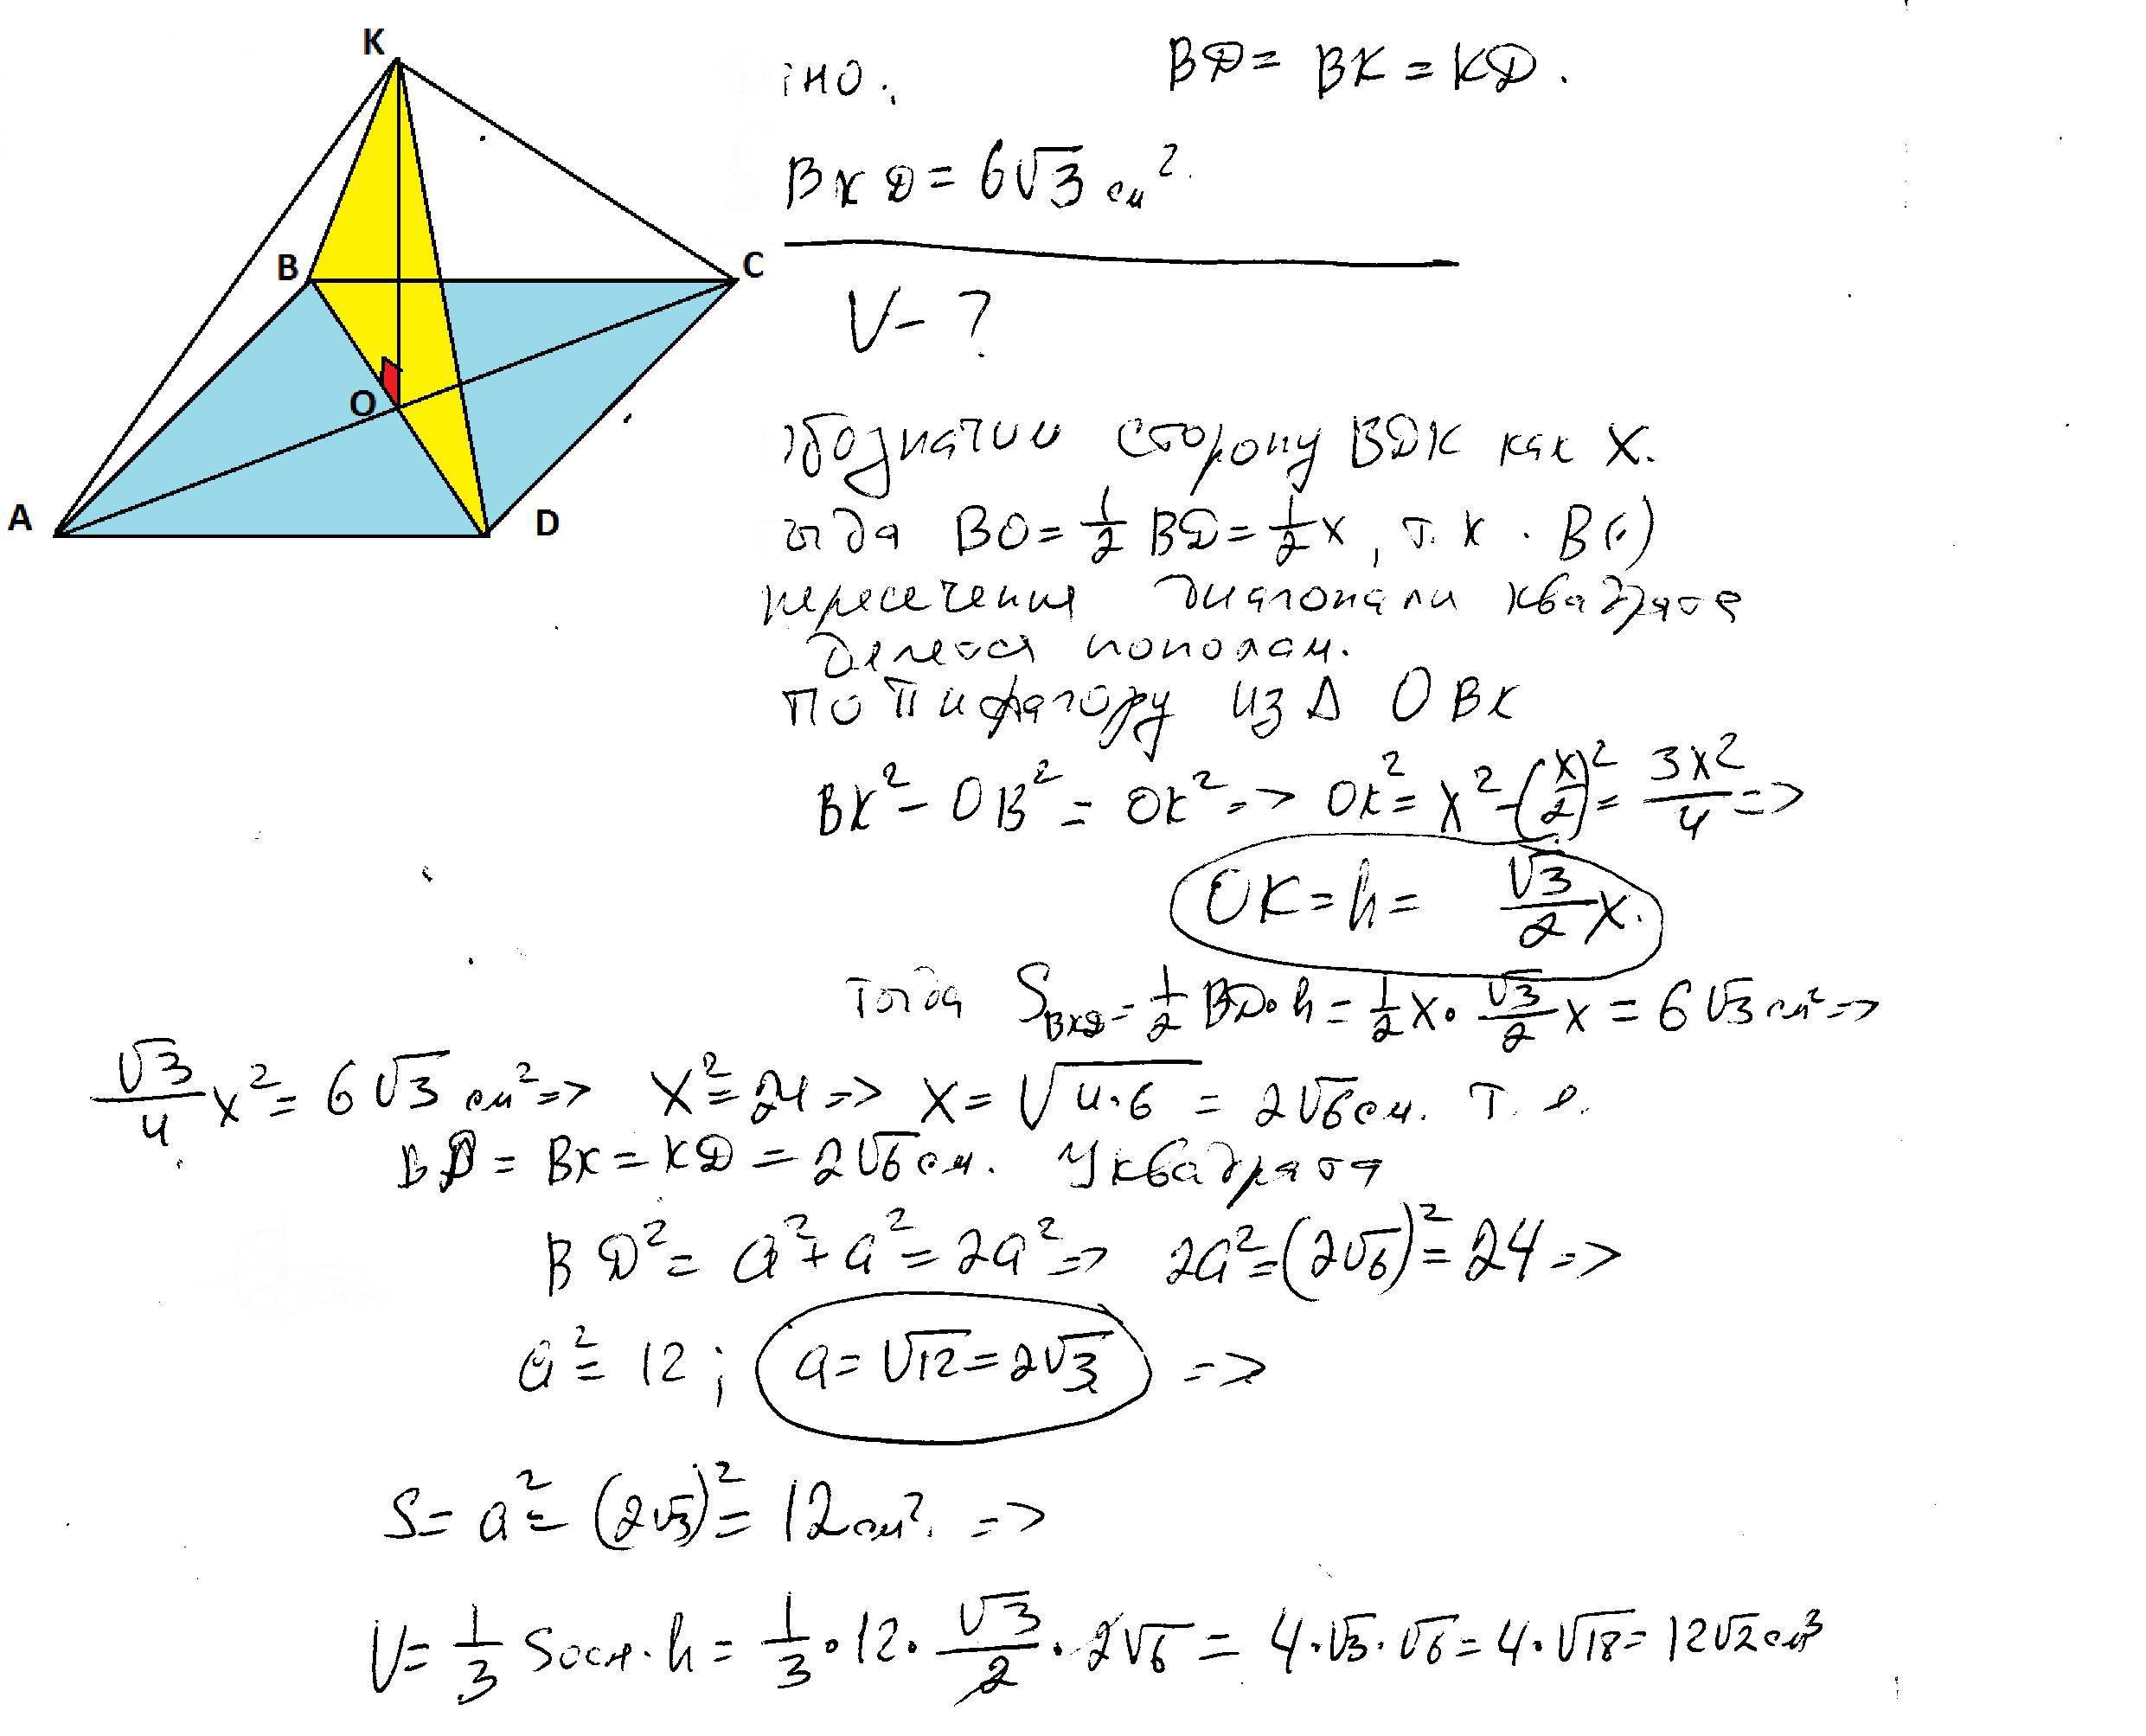 K
B
C
O
A
D
но. BD = BK = KD.
BKD = 6√3 см².
V - ?
обозначим сторону BDK как X.
огда BO = 1/2 BD = 1/2 x, т. к. В (·)
пересечения диагонали квадрата
делятся пополам.
по Пифагору из Δ OBK
BK² - OB² = OK² => OK² = X² - (x/2)² = 3x²/4 =>
OK = h = √3/2 x.
тогда S BKD = 1/2 BD · h = 1/2 x · √3/2 x = 6√3 см² =>
√3/4 x² = 6√3 см² => X² = 24 => X = √4·6 = 2√6 см. т. е.
BD = BK = KD = 2√6 см. У квадрата
BD² = a² + a² = 2a² => 2a² = (2√6)² = 24 =>
a² = 12 ; a = √12 = 2√3 =>
S = a² = (2√3)² = 12 см². =>
V = 1/3 Sосн · h = 1/3 · 12 · √3/2 · 2√6 = 4 · √3 · √6 = 4 · √18 = 12√2 см³